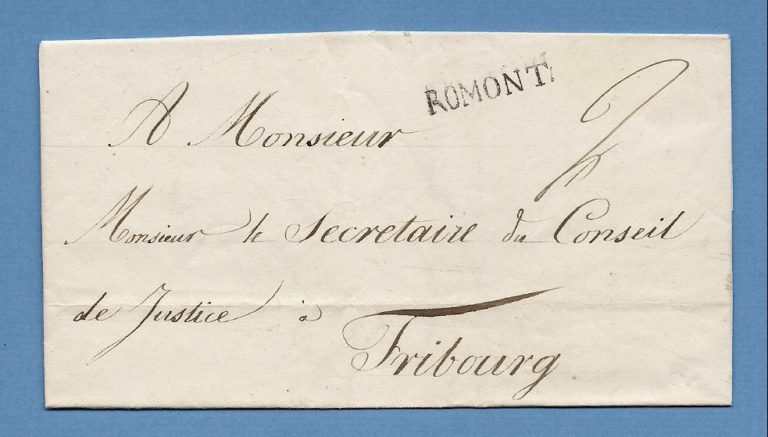 ROMONT.
2
A Monsieur
Monsieur le Secretaire du Conseil
de Justice à
Fribourg